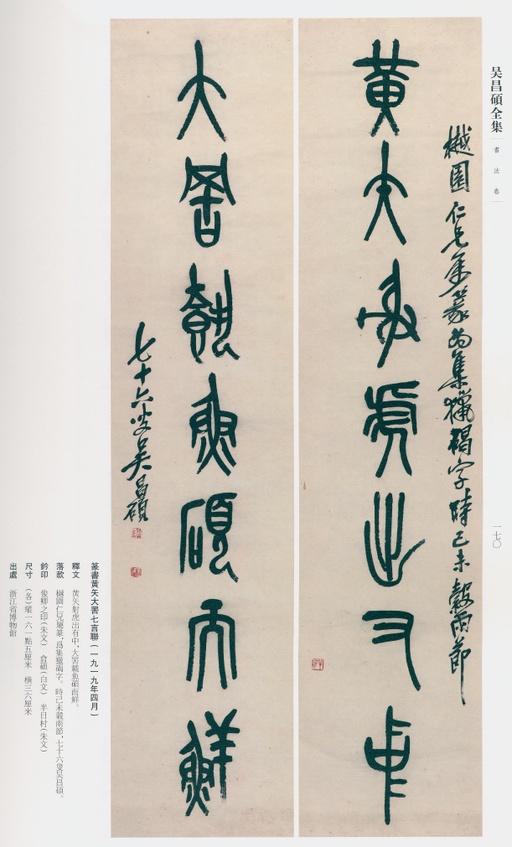 吴昌碩全集
書法卷
一七〇
樾園仁兄屬篆為集獵碣字時己未穀雨節
黃矢射虎出又中
大罟𩛥魚碩而鮮
七十六叟吴昌碩
篆書黃矢大罟七言聯(一九一九年四月)
釋文 黃矢射虎出有中,大罟載魚碩而鮮。
落款 樾園仁兄屬篆,爲集獵碣字。時己未穀雨節,七十六叟吴昌碩。
鈐印 俊卿之印(朱文) 倉碩(白文) 半日村(朱文)
尺寸 (各)縱一六一點五厘米 橫三六厘米
出處 浙江省博物館